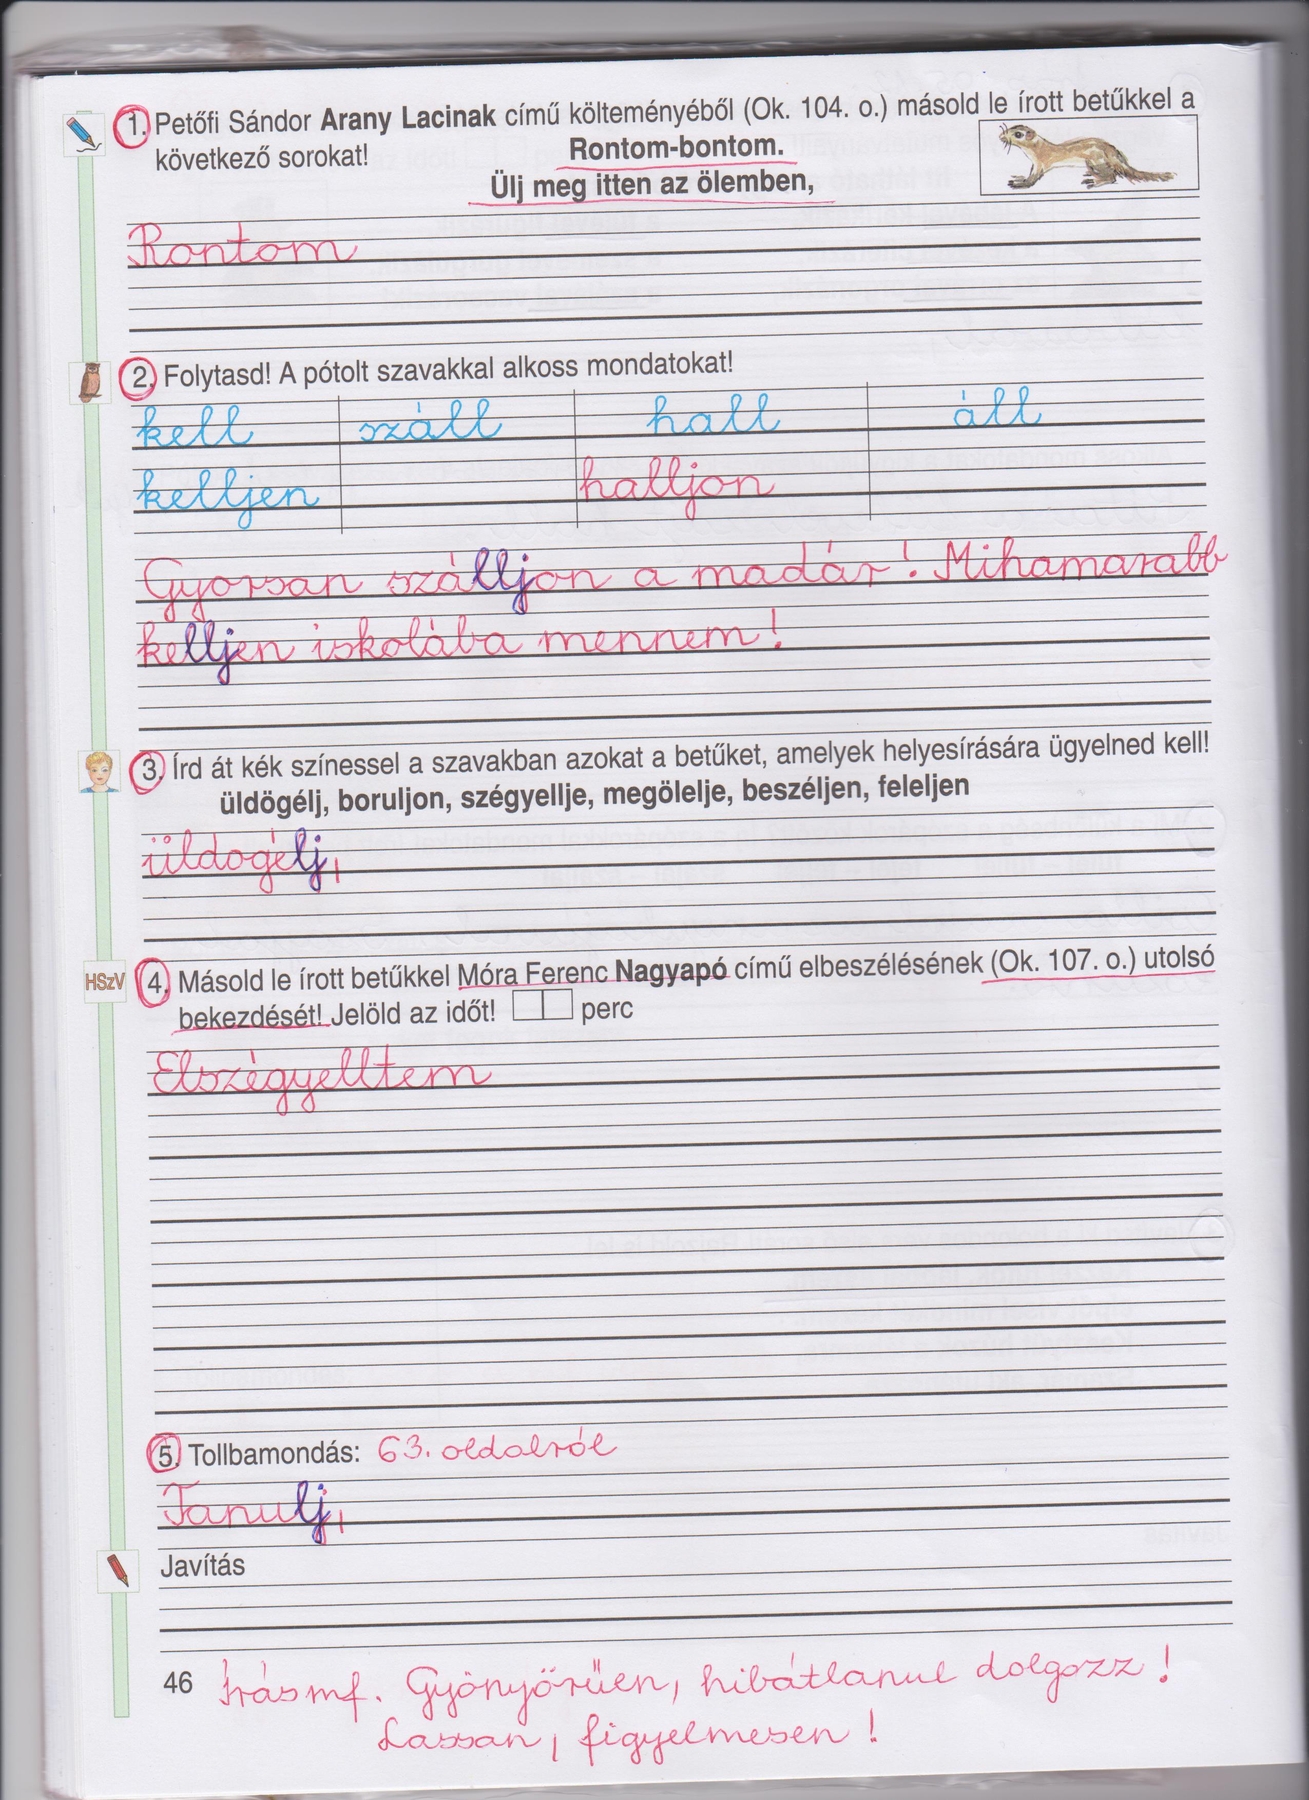 1. Petőfi Sándor Arany Lacinak című költeményéből (Ok. 104. o.) másold le írott betűkkel a
következő sorokat!
Rontom-bontom.
Ülj meg itten az ölemben,
Rontom
2. Folytasd! A pótolt szavakkal alkoss mondatokat!
kell száll hall áll
kelljen halljon
Gyorsan szálljon a madár! Mihamarabb
kelljen iskolába mennem!
3. Írd át kék színessel a szavakban azokat a betűket, amelyek helyesírására ügyelned kell!
üldögélj, boruljon, szégyellje, megölelje, beszéljen, feleljen
üldogélj,
HSzV 4. Másold le írott betűkkel Móra Ferenc Nagyapó című elbeszélésének (Ok. 107. o.) utolsó
bekezdését! Jelöld az időt! perc
Elszégyelltem
5. Tollbamondás: 63. oldalról
Tanulj,
Javítás
46 Írásmf. Gyönyörűen, hibátlanul dolgozz!
Lassan, figyelmesen!